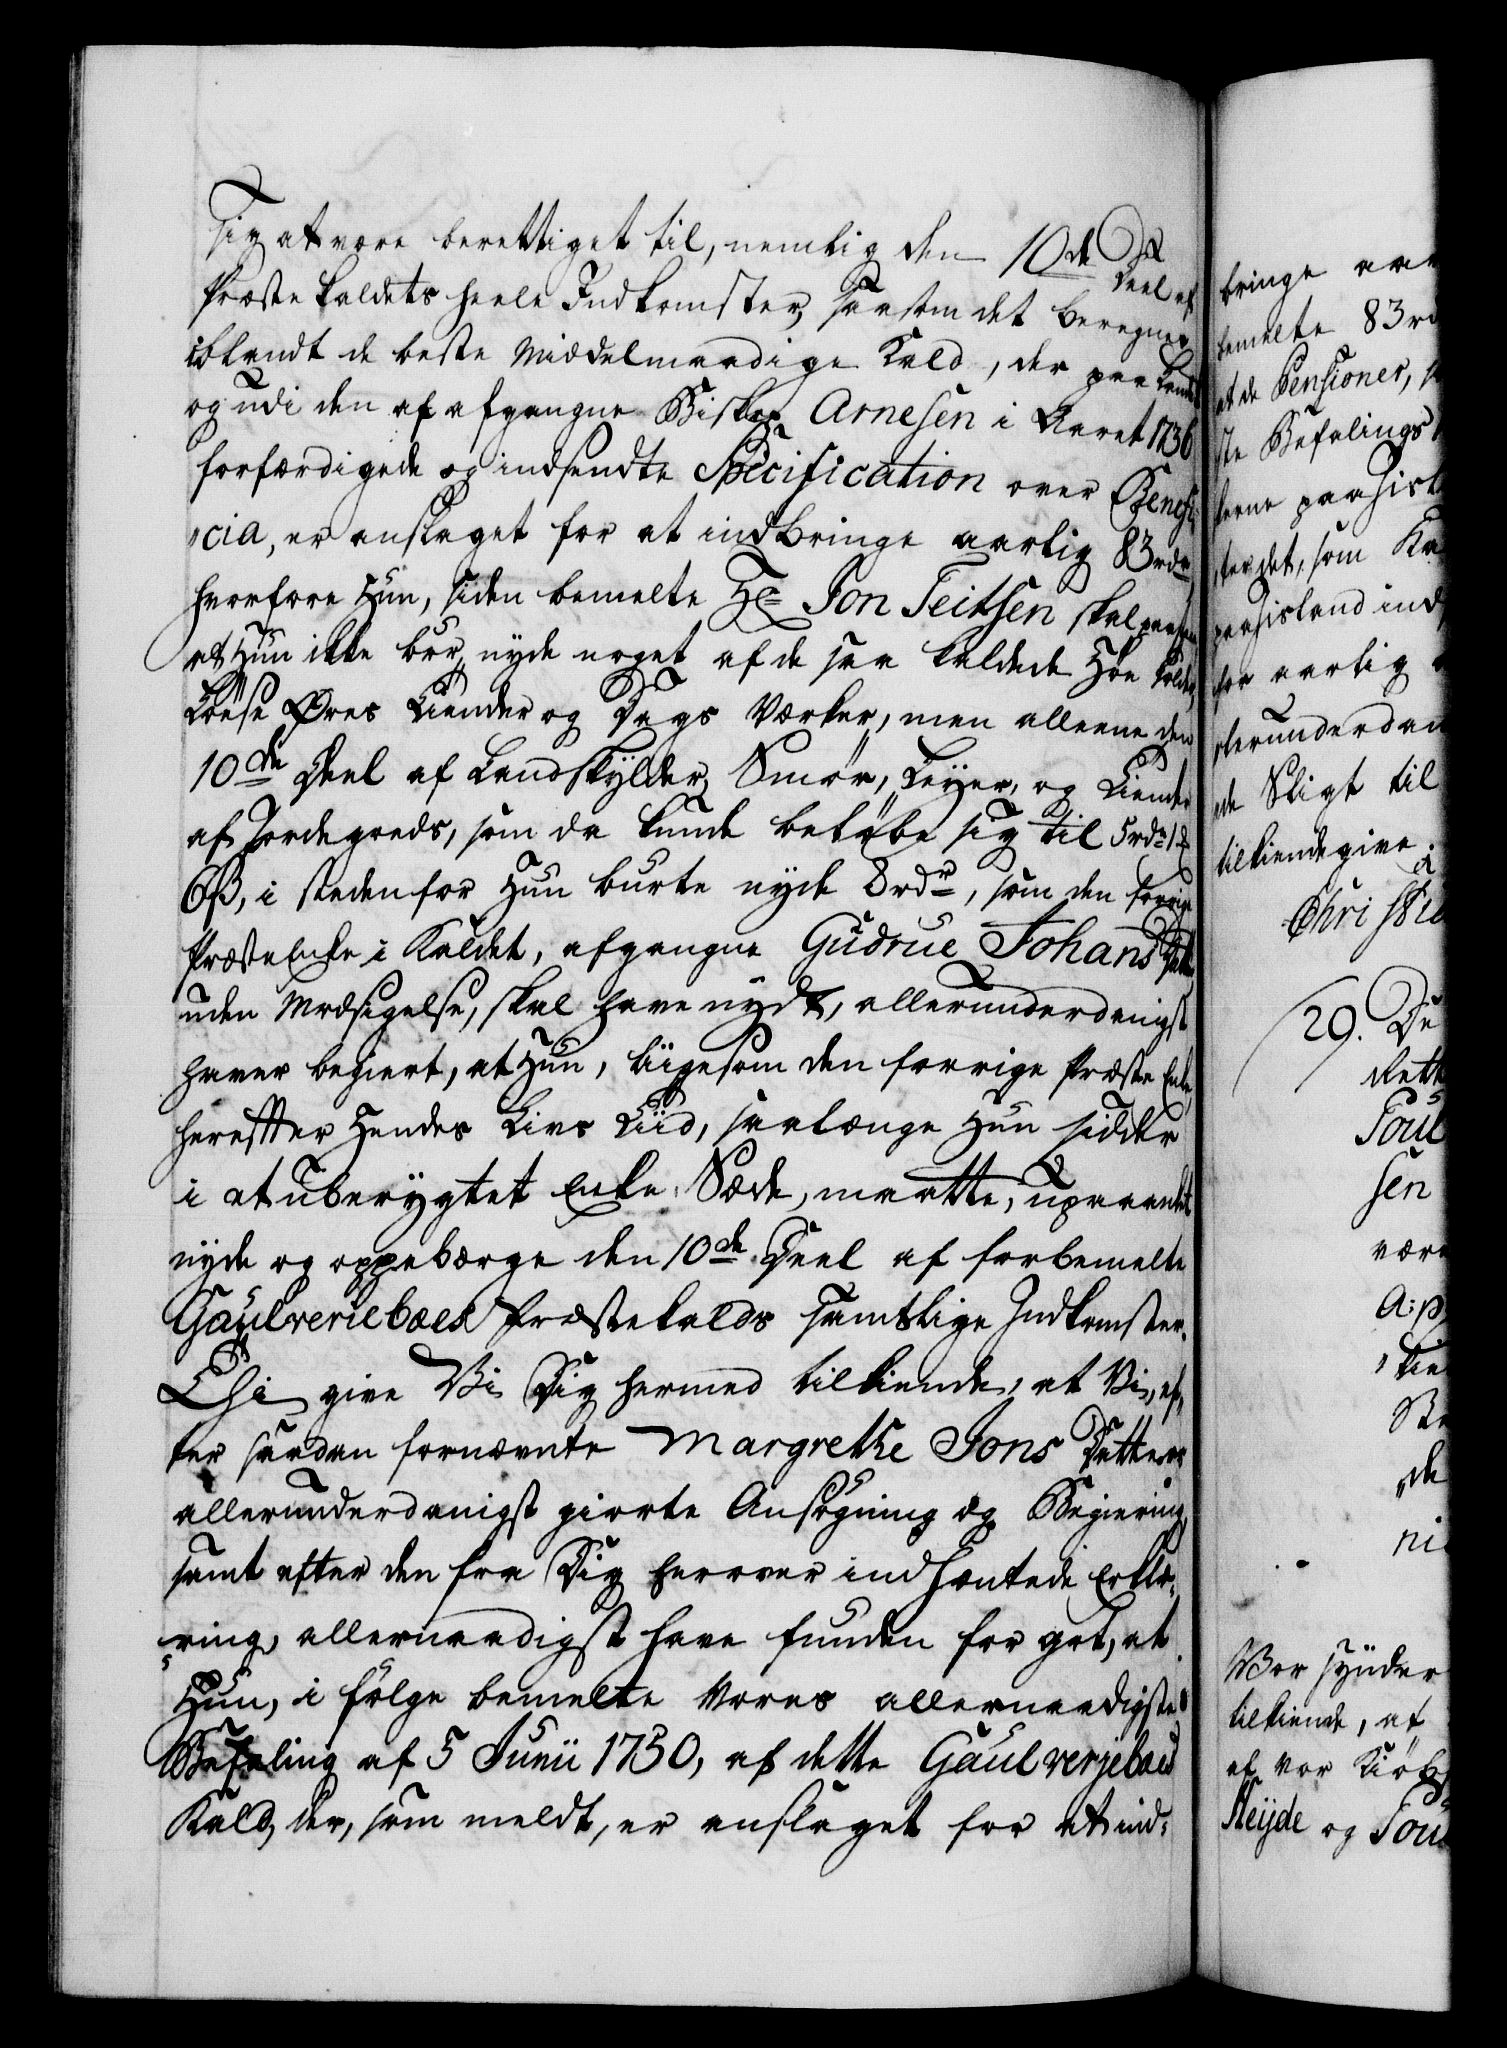 sig at være berettiget til, nemlig den 10de Deel af
Præste Kaldets heele Indkomster, saasom det beregnes
iblandt de beste middelmaadige Kald, der paa Landet
og udi den af afgangne Biskop Arnesen i Aaret 1736
forfærdigede og indsendte Specification over Benefi-
cia, er anslaget for at indbringe aarlig 83 rdr
hvorfore Hun, siden bemelte Hr Jon Teitsen skal paastaae
at Hun ikke bør nyde noget af de saa kaldede
Løese Øres Tiender og Dags Værker, men alleene den
10de Deel af Landskylder, Smør, Leyer, og Tiender
af Jordegods, som da kunde beløbe sig til 5 rdr 1 mk
6 ß, i steden for Hun burte nyde 8 rdr, som den forrige
Præste Enke i Kaldet, afgangne Gudrue Johans Datter
uden Modsigelse, skal have nydt, allerunderdanigst
haver begiert, at Hun, liigesom den forrige Præste Enke,
herefter Hendes Livs Tiid, saalænge Hun sidder
i et uberygtet Enke-Sæde, maatte, upaaanket
nyde og oppebærge den 10de Deel af forbemelte
Gaulveriebaes Præstekalds samtlige Indkomster.
Thi give Vi Dig hermed tilkiende, at Vi, ef-
ter saadan fornævnte Margrethe Jons Datters
allerunderdanigst giorte Ansøgning og Begiering,
samt efter den fra Dig herover indhæntede Erklæ-
ring, allernaadigst have funden for got, at
Hun, i følge bemelte Vores allernaadigste
Befaling af 5 Junii 1750, af dette Gaulverjebaes
Kald, der, som meldt, er anslaget for at ind-
bringe aar
bemelte 83 rd
at de Pensioner, s
ste Befalings
paa Island ind
for aarlig
allerunderdan
de Sligt til
tilkiende give.
Christia
29. De
Rett
Poul
sen
være
A: p
Tie
de
ni
Vor synder
tilkiende, at
af vor Kiøb
Steyde og Pou